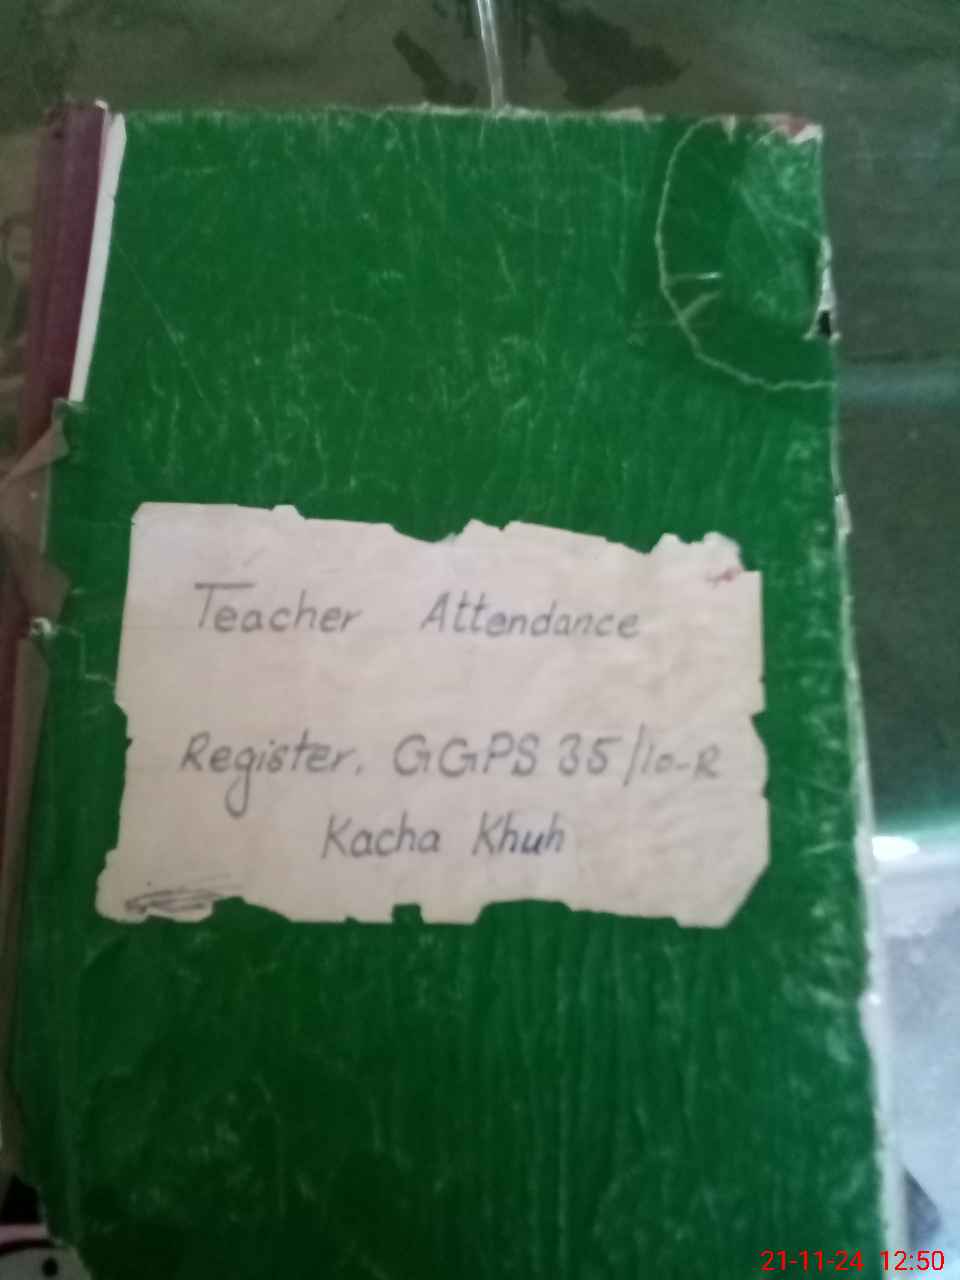 Teacher Attendance
Register. GGPS 35/10-R
Kacha Khuh
21-11-24 12:50